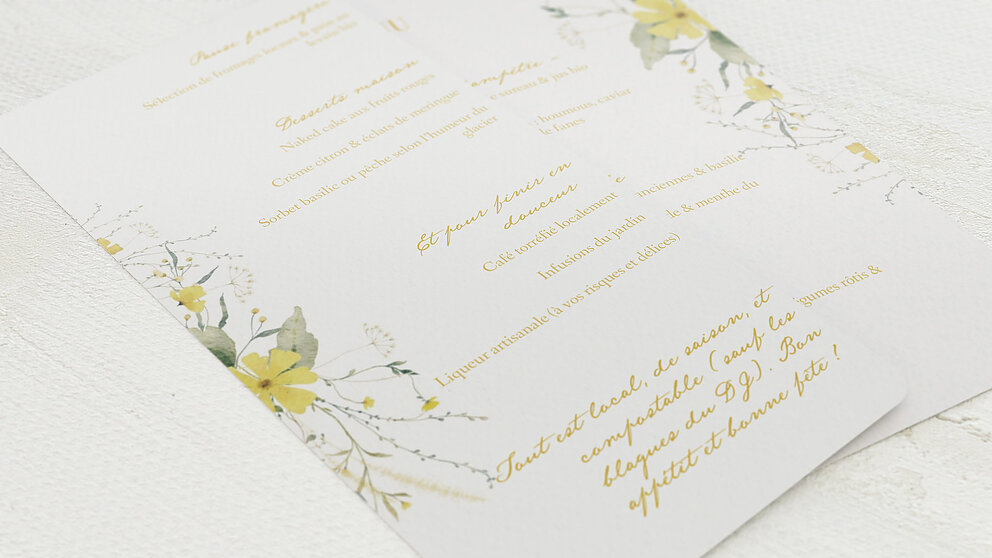 Pause fromagère
Sélection de fromages locaux & pain au
levain bio
Desserts maison
Naked cake aux fruits rouges
Crème citron & éclats de meringue
Sorbet basilic ou pêche selon l'humeur du
glacier
Et pour finir en
douceur
Café torréfié localement
Infusions du jardin
Liqueur artisanale (à vos risques et délices)
Tout est local, de saison, et
compostable (sauf les
blagues du DJ). Bon
appétit et bonne fête !
U
ampêtre -
e sureau & jus bio
houmous, caviar
le fanes
e
anciennes & basilic
le & menthe du
gumes rôtis &